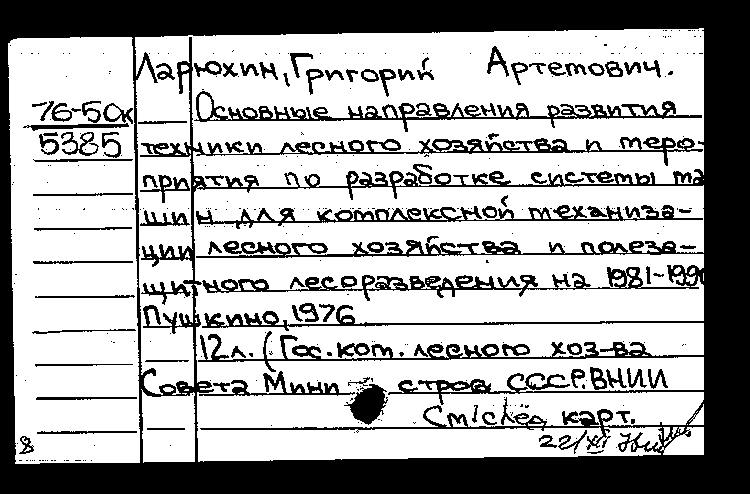 Ларюхин, Григорий Артемович.
76-50к Основные направления развития
5385 техники лесного хозяйства и меро-
приятия по разработке системы ма
шин для комплексной механиза-
ции лесного хозяйства и полеза-
щитного лесоразведения на 1981-1990
Пушкино, 1976
12л. (Гос. ком. лесного хоз-ва
Совета Мини стров СССР. ВНИИ
См/след карт.
8 22/XI